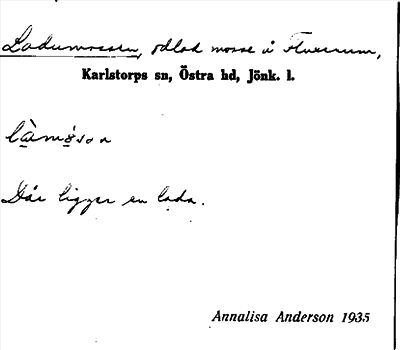 Ladumossen, odlad mosse å Fluerum,
Karlstorps sn, Östra hd, Jönk. l.
làmóson
Där ligger en lada.
Annalisa Anderson 1935